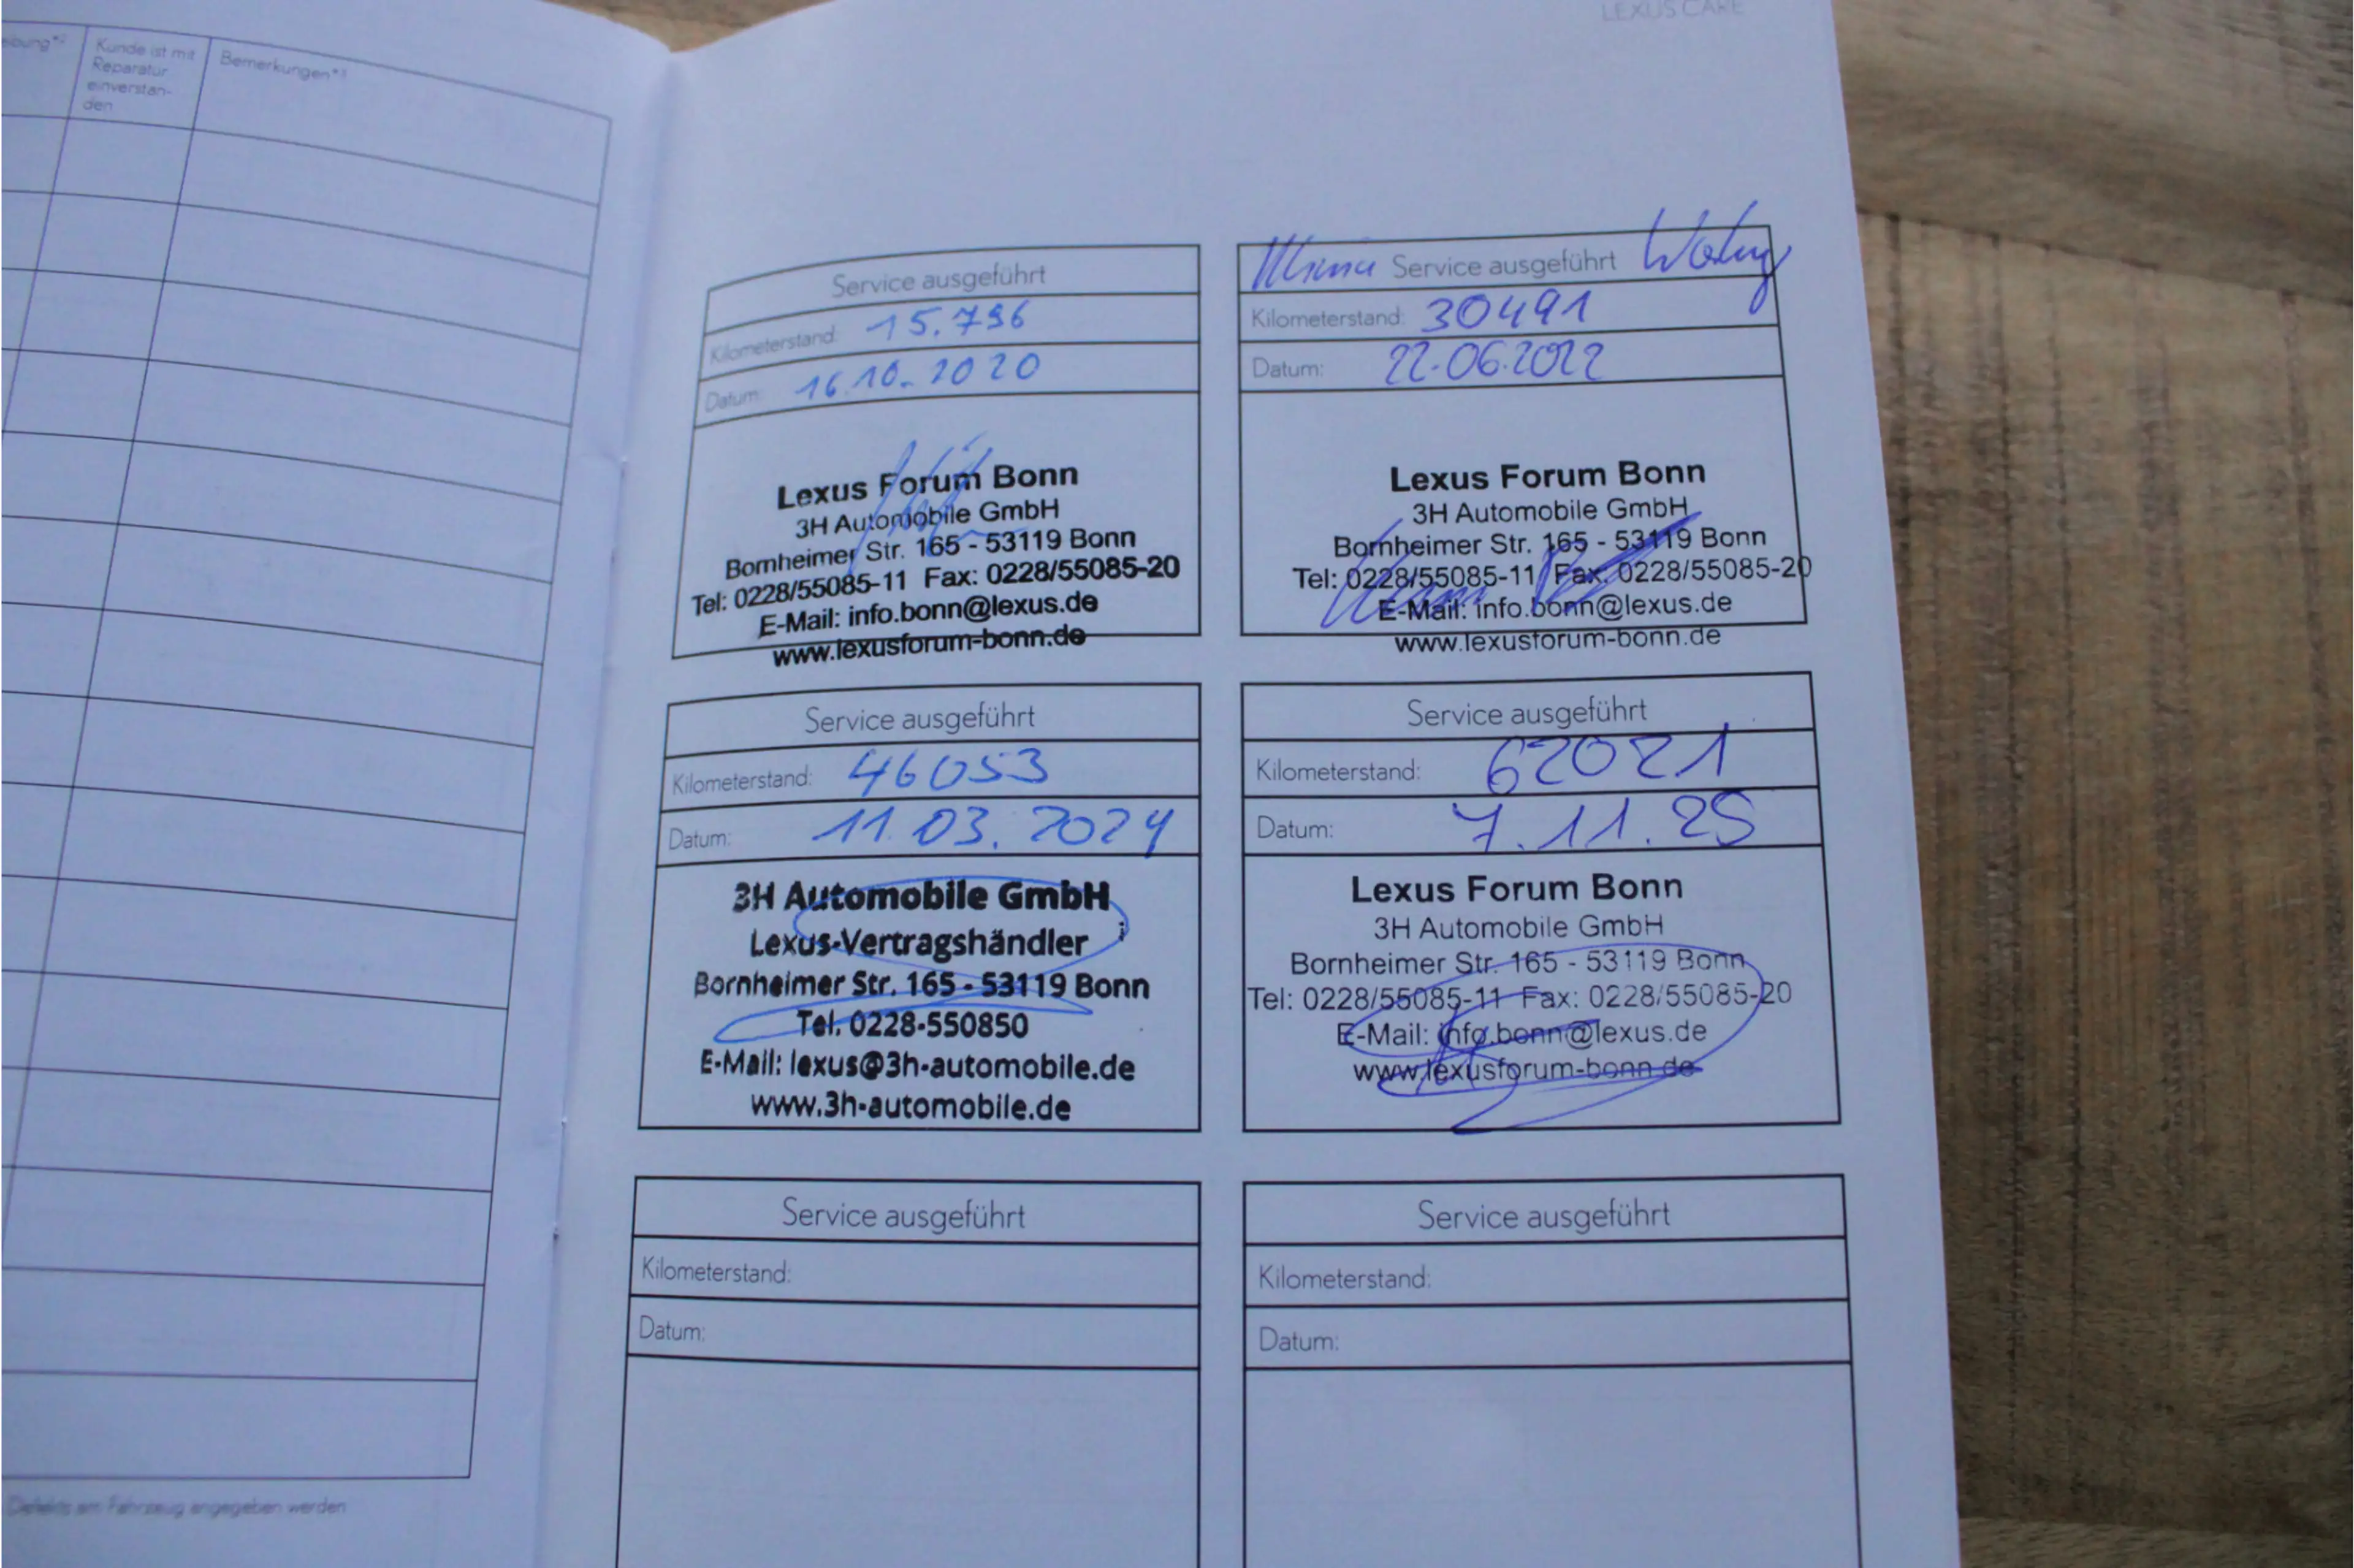 LEXUS CARE
Kunde ist mit
Reparatur
einverstan-
den
Bemerkungen*³
Defekts am Fahrzeug angegeben werden
Service ausgeführt
Kilometerstand: 15.796
Datum: 16.10.2020
Lexus Forum Bonn
3H Automobile GmbH
Bornheimer Str. 165 - 53119 Bonn
Tel: 0228/55085-11 Fax: 0228/55085-20
E-Mail: info.bonn@lexus.de
www.lexusforum-bonn.de
Service ausgeführt
Kilometerstand: 30491
Datum: 22.06.2022
Lexus Forum Bonn
3H Automobile GmbH
Bornheimer Str. 165 - 53119 Bonn
Tel: 0228/55085-11 Fax: 0228/55085-20
E-Mail: info.bonn@lexus.de
www.lexusforum-bonn.de
Service ausgeführt
Kilometerstand: 46053
Datum: 11.03.2024
3H Automobile GmbH
Lexus-Vertragshändler
Bornheimer Str. 165 - 53119 Bonn
Tel. 0228-550850
E-Mail: lexus@3h-automobile.de
www.3h-automobile.de
Service ausgeführt
Kilometerstand: 62021
Datum: 7.11.25
Lexus Forum Bonn
3H Automobile GmbH
Bornheimer Str. 165 - 53119 Bonn
Tel: 0228/55085-11 Fax: 0228/55085-20
E-Mail: info.bonn@lexus.de
www.lexusforum-bonn.de
Service ausgeführt
Kilometerstand:
Datum:
Service ausgeführt
Kilometerstand:
Datum: